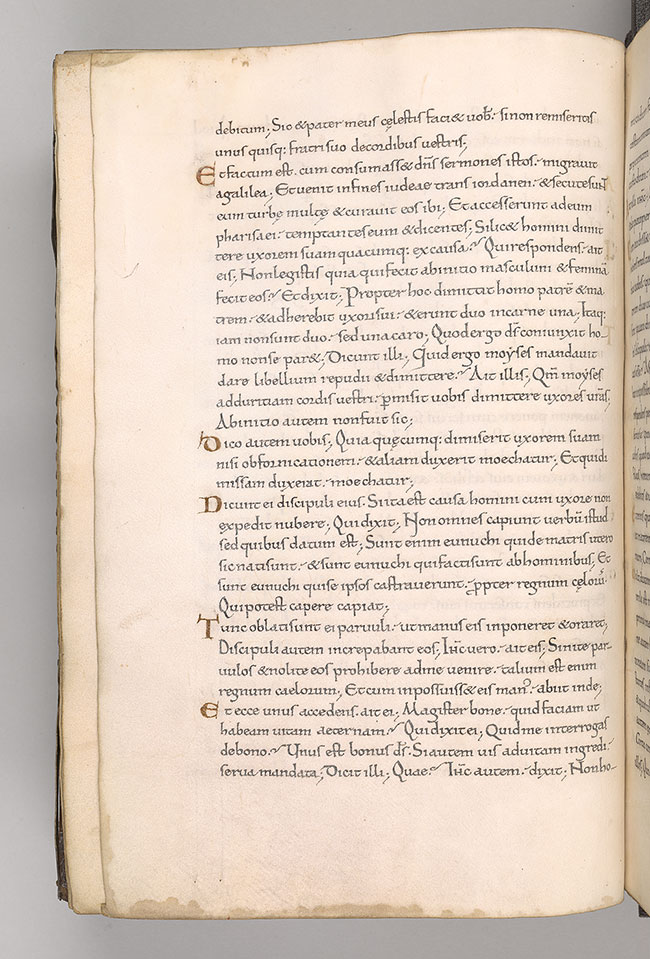 debitum; Sic & pater meus cęlestis faci& uob: si non remiseritis
unus quisq: fratri suo de cordibus uestris;
Et factum est. cum consumass& dn̄s sermones istos. migrauit
a galilea; Et uenit in fines iudeae trans iordanen. & secutę sunt
eum turbę multę & curauit eos ibi; Et accesserunt ad eum
pharisaei. temptantes eum & dicentes; Si lic& homini dimit
tere uxorem suam quacumq: ex causa. Qui respondens. ait
eis; Non legistis quia qui fecit ab initio masculum & feminā
fecit eos. Et dixit; Propter hoc dimittat homo patrē & ma
trem. & adherebit uxori suę. & erunt duo in carne una; Itaq:
iam non sunt duo. sed una caro; Quod ergo dſ coniunxit ho
mo non separ&; Dicunt illi; Quid ergo moyses mandauit
dare libellum repudii & dimittere. Ait illis; Qm̄ moyses
ad duritiam cordis uestri. pmisit uobis dimittere uxores urās;
Ab initio autem non fuit sic;
Dico autem uobis; Quia quęcumq: dimiserit uxorem suam
nisi ob fornicationem. & aliam duxerit moechatur; Et qui di
missam duxerat. moechatur;
Dicunt ei discipuli eius. Si ita est causa homini cum uxore non
expedit nubere; Qui dixit; Non omnes capiunt uerbū istud
sed quibus datum est; Sunt enim eunuchi qui de matris utero
sic nati sunt. & sunt eunuchi qui facti sunt ab hominibus; Et
sunt eunuchi qui se ipsos castrauerunt. ppter regnum cęlorū.
Qui potest capere capiat;
Tunc oblati sunt ei paruuli. ut manus eis inponeret & orar&;
Discipuli autem increpabant eos; Ih̄c uero. ait eis; Sinite par-
uulos & nolite eos prohibere ad me uenire. talium est enim
regnum caelorum; Et cum inpossuiss& eis man. abiit inde;
Et ecce unus accedens. ait ei; Magister bone. quid faciam ut
habeam uitam aeternam. Qui dixit ei; Quid me interrogas
de bono. Unus est bonus dſ. Si autem uis ad uitam ingredi.
serua mandata; Dicit illi; Quae. Ih̄c autem. dixit; Non ho-